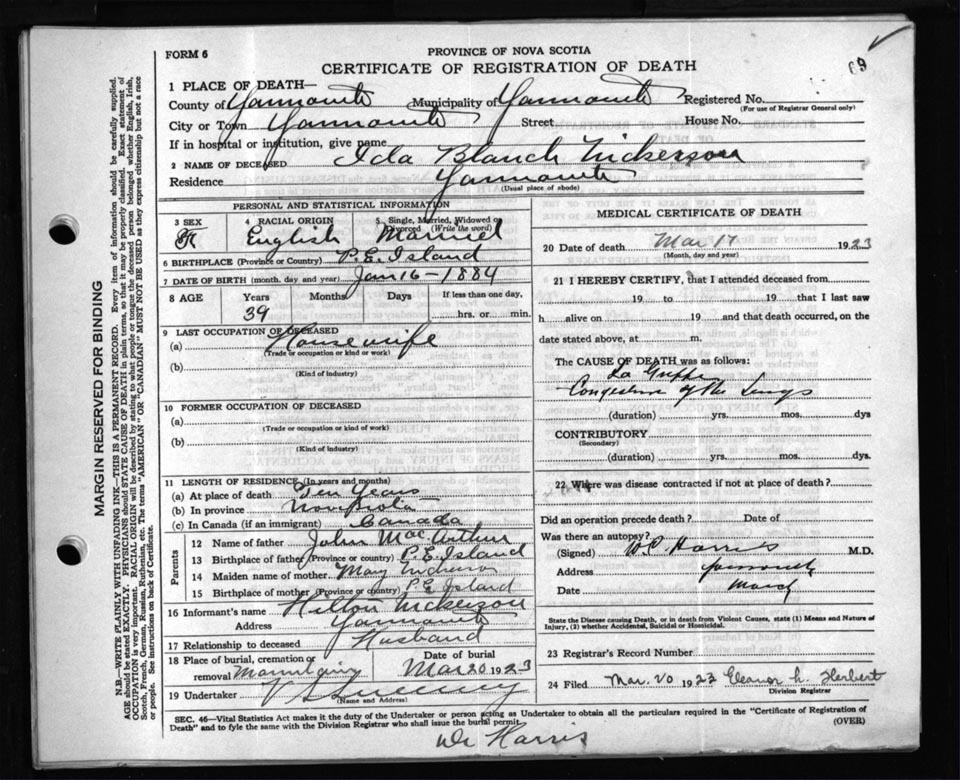 69
FORM 6
PROVINCE OF NOVA SCOTIA
CERTIFICATE OF REGISTRATION OF DEATH
1 PLACE OF DEATH—
County of Yarmouth Municipality of Yarmouth Registered No.
(For use of Registrar General only)
City or Town Yarmouth Street House No.
If in hospital or institution, give name
2 NAME OF DECEASED Ida Blanch Nickerson
Residence Yarmouth
(Usual place of abode)
PERSONAL AND STATISTICAL INFORMATION
3 SEX 4 RACIAL ORIGIN 5 Single, Married, Widowed or Divorced (Write the word)
F English Married
6 BIRTHPLACE (Province or Country) P.E. Island
7 DATE OF BIRTH (month, day and year) Jan 16 - 1884
8 AGE Years Months Days If less than one day,
39 hrs. or min.
9 LAST OCCUPATION OF DECEASED
(a) Housewife
(Trade or occupation or kind or work)
(b)
(Kind of industry)
10 FORMER OCCUPATION OF DECEASED
(a)
(Trade or occupation or kind of work)
(b)
(Kind of industry)
11 LENGTH OF RESIDENCE (in Years and months)
(a) At place of death Ten Years
(b) In province Nova Scotia
(c) In Canada (if an immigrant) Canada
Parents
12 Name of father John MacArthur
13 Birthplace of father (Province or country) P.E. Island
14 Maiden name of mother Mary
15 Birthplace of mother (Province or country) P.E. Island
16 Informant's name Hilton Nickerson
Address Yarmouth
17 Relationship to deceased Husband
18 Place of burial, cremation or removal Date of burial
Mar 20 1923
19 Undertaker
(Name and Address)
MEDICAL CERTIFICATE OF DEATH
20 Date of death Mar 17 1923
(Month, day and year)
21 I HEREBY CERTIFY, that I attended deceased from
19 to 19 that I last saw
h alive on 19 and that death occurred, on
date stated above, at m.
The CAUSE OF DEATH was as follows:
La Grippe
Congestion of the Lungs
(duration) yrs. mos. dys
CONTRIBUTORY
(Secondary)
(duration) yrs. mos. dys.
22 Where was disease contracted if not at place of death?
Did an operation precede death? Date of
Was there an autopsy?
(Signed) Harris M.D.
Address Yarmouth
Date March
State the Disease causing Death, or in death from Violent Causes, state (1) Means and Nature of
Injury, (2) whether Accidental, Suicidal or Homicidal.
23 Registrar's Record Number
24 Filed Mar. 20 1923 Eleanor h. Herbert
Division Registrar
SEC. 46—Vital Statistics Act makes it the duty of the Undertaker or person acting as Undertaker to obtain all the particulars required in the "Certificate of Registration of
Death" and to fyle the same with the Division Registrar who shall issue the burial permit. (OVER)
Dr Harris
MARGIN RESERVED FOR BINDING
N.B.—WRITE PLAINLY WITH UNFADING INK—THIS IS A PERMANENT RECORD. Every item of information should be carefully supplied.
AGE should be stated EXACTLY. PHYSICIANS should STATE CAUSE OF DEATH in plain terms, so that it may be properly classified. Exact statement of
OCCUPATION is very important. RACIAL ORIGIN will be described by stating to what people or tongue the deceased person belonged whether English, Irish,
Scotch, French, German, Russian, Ruthenian, etc. The terms "AMERICAN" OR "CANADIAN" MUST NOT BE USED as they express citizenship but not a race
or people. See instructions on back of Certificate.